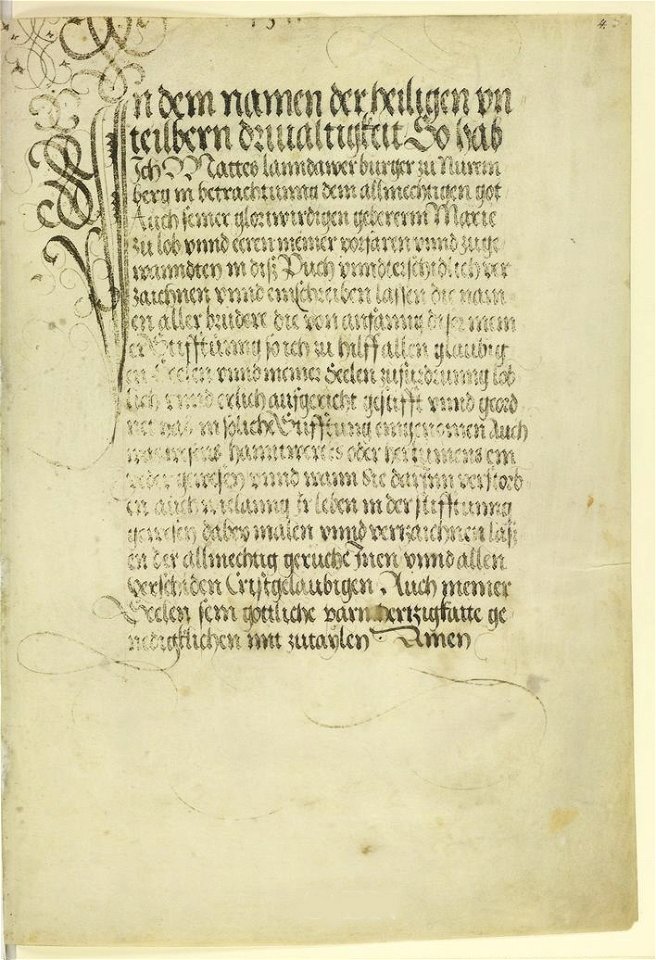 4.
In dem namen der heiligen vn
teilbern driualtigkeit So hab
Ich Mattes lanndawer burger zu Nurem
berg in betrachtunng dem allmechtigen got
Auch seiner glorwirdigen gebererin Marie
zu lob vnnd eeren meiner vorfaren vnnd zuge
wanndten in diß Puch vnndterschidlich ver
zaichnen vnnd einschreiben lassen die nam
en aller brudere die von anfanng diser mein
er Stifftunng so ich zu hilff allen glaubig
en Seelen vnnd meiner Seelen zufurdrunng lob
lich vnnd erlich aufgericht gestifft vnnd geord
net hab in soliche Stifftung eingenomen Auch
was wesens hanntwercks oder herkumens ein
yeder gewesen vnnd wann Sie darinn verstorb
en auch wielanng Ir leben in der stifftunng
gewesen dabey malen vnnd vertzaichnen lass
en der allmechtig geruche Inen vnnd allen
verschiden Cristgelaubigen . Auch meiner
Seelen sein gottliche parmhertzigkaitte ge
nedigklichen mit zutaylen Amen